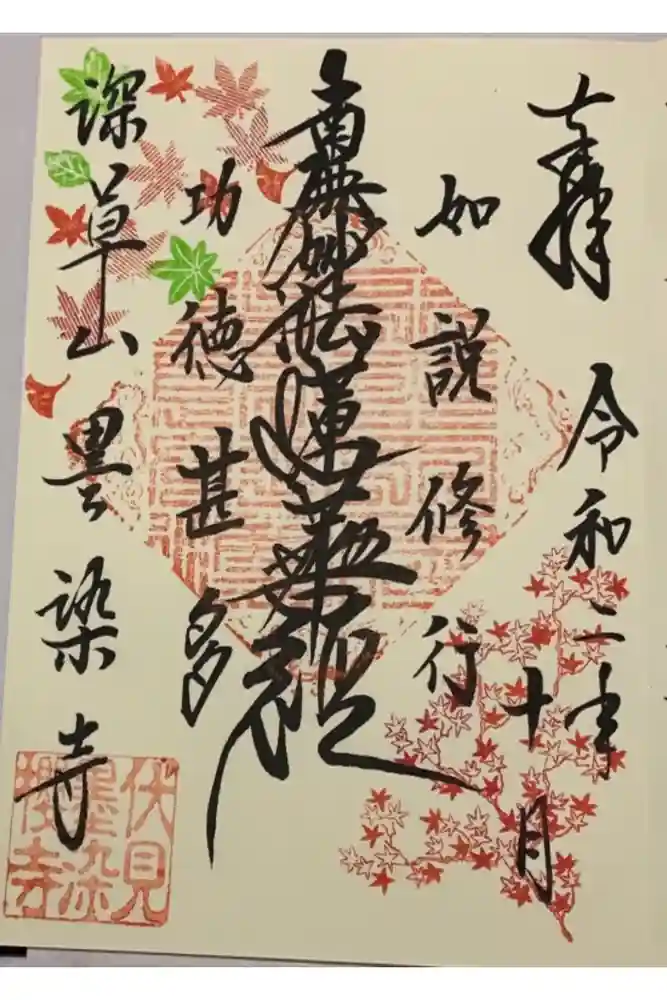 奉拝 令和二年
十月
如説修行
南無妙法蓮華経
功徳甚多
深草山墨染寺
伏見
墨染
櫻寺